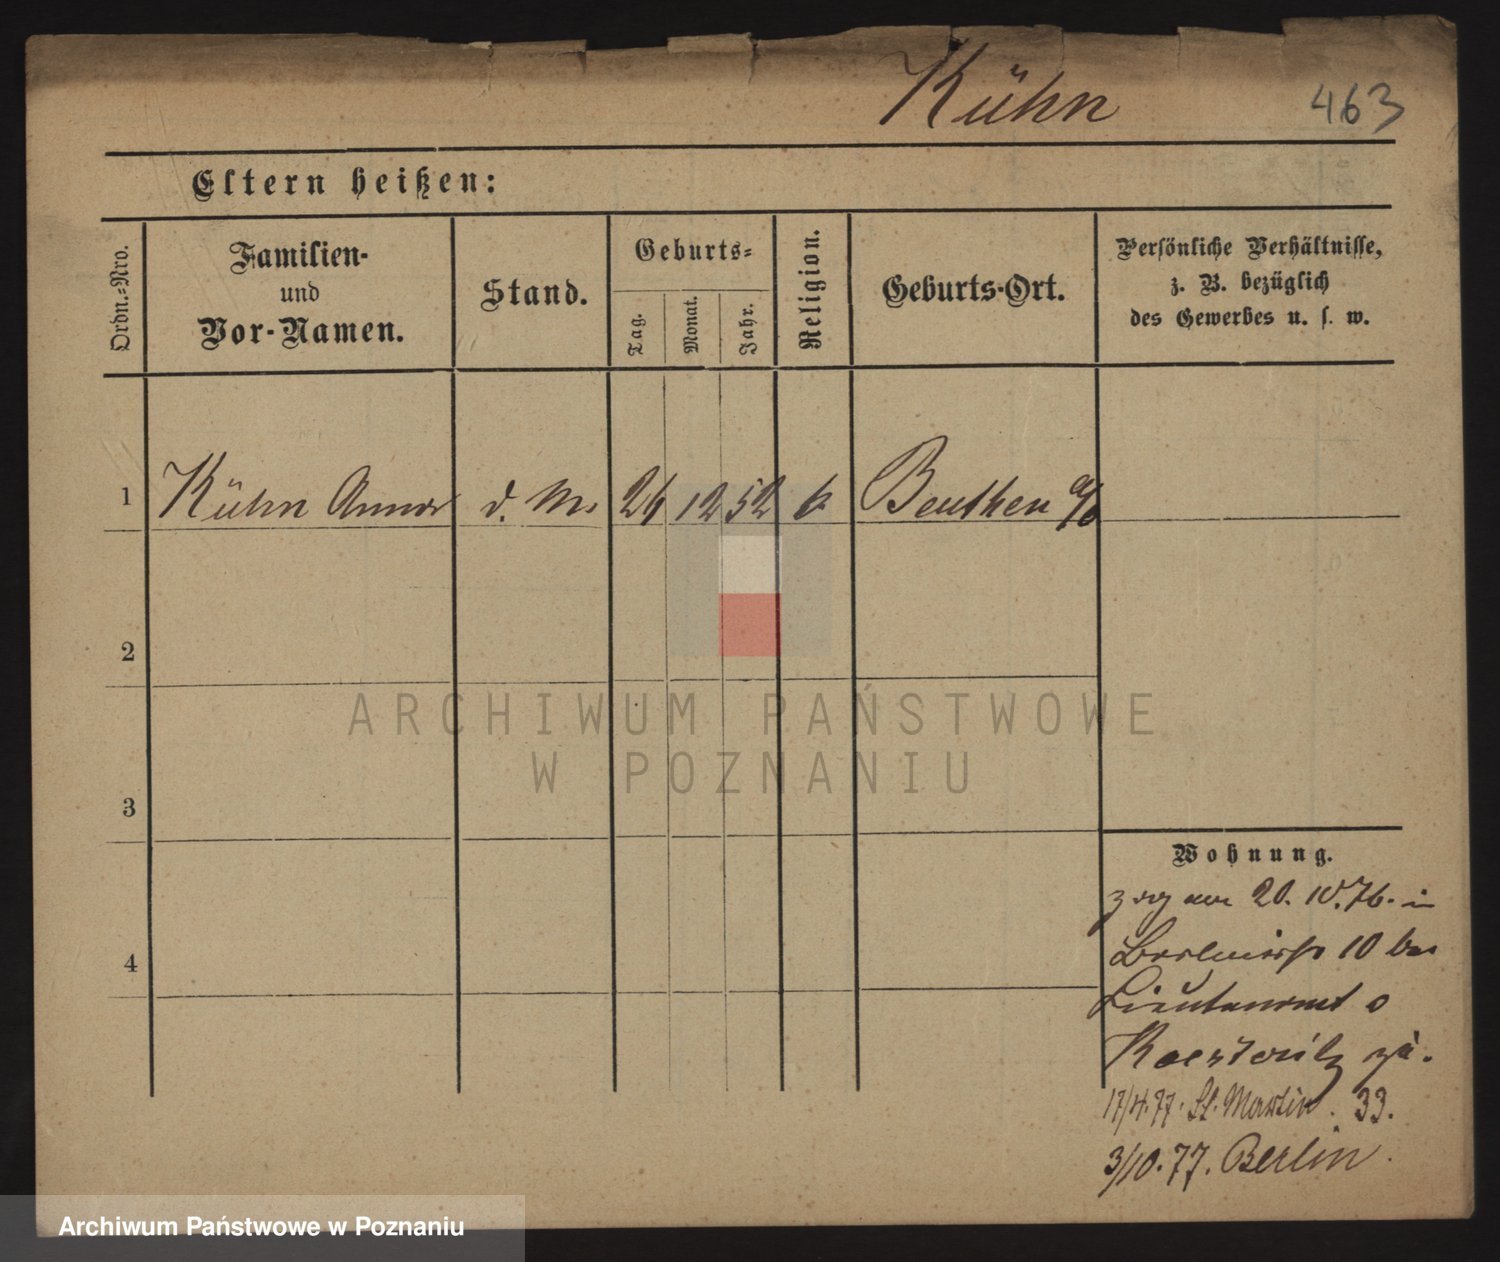 Kühn 463
Eltern heißen:
Ordn.-Nro.
Familien-
und
Vor-Namen.
Stand.
Geburts-
Tag.
Monat.
Jahr.
Religion.
Geburts-Ort.
Persönliche Verhältnisse,
z. B. bezüglich
des Gewerbes u. s. w.
1 Kühn Anna d. M. 26 12 52 k Beuthen a/o
2
3
4
Wohnung.
zog am 20. 10. 76. in
10 bei
Lieutenant
zu.
17/4. 77. St. Martin. 33.
3/10. 77. Berlin.
ARCHIWUM PAŃSTWOWE
W POZNANIU
Archiwum Państwowe w Poznaniu